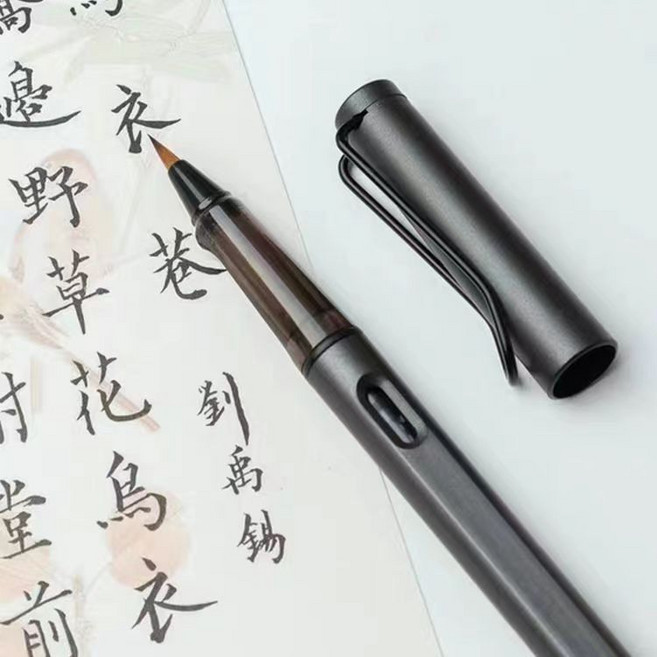 衣巷
劉禹錫
邊野草花烏衣
堂前